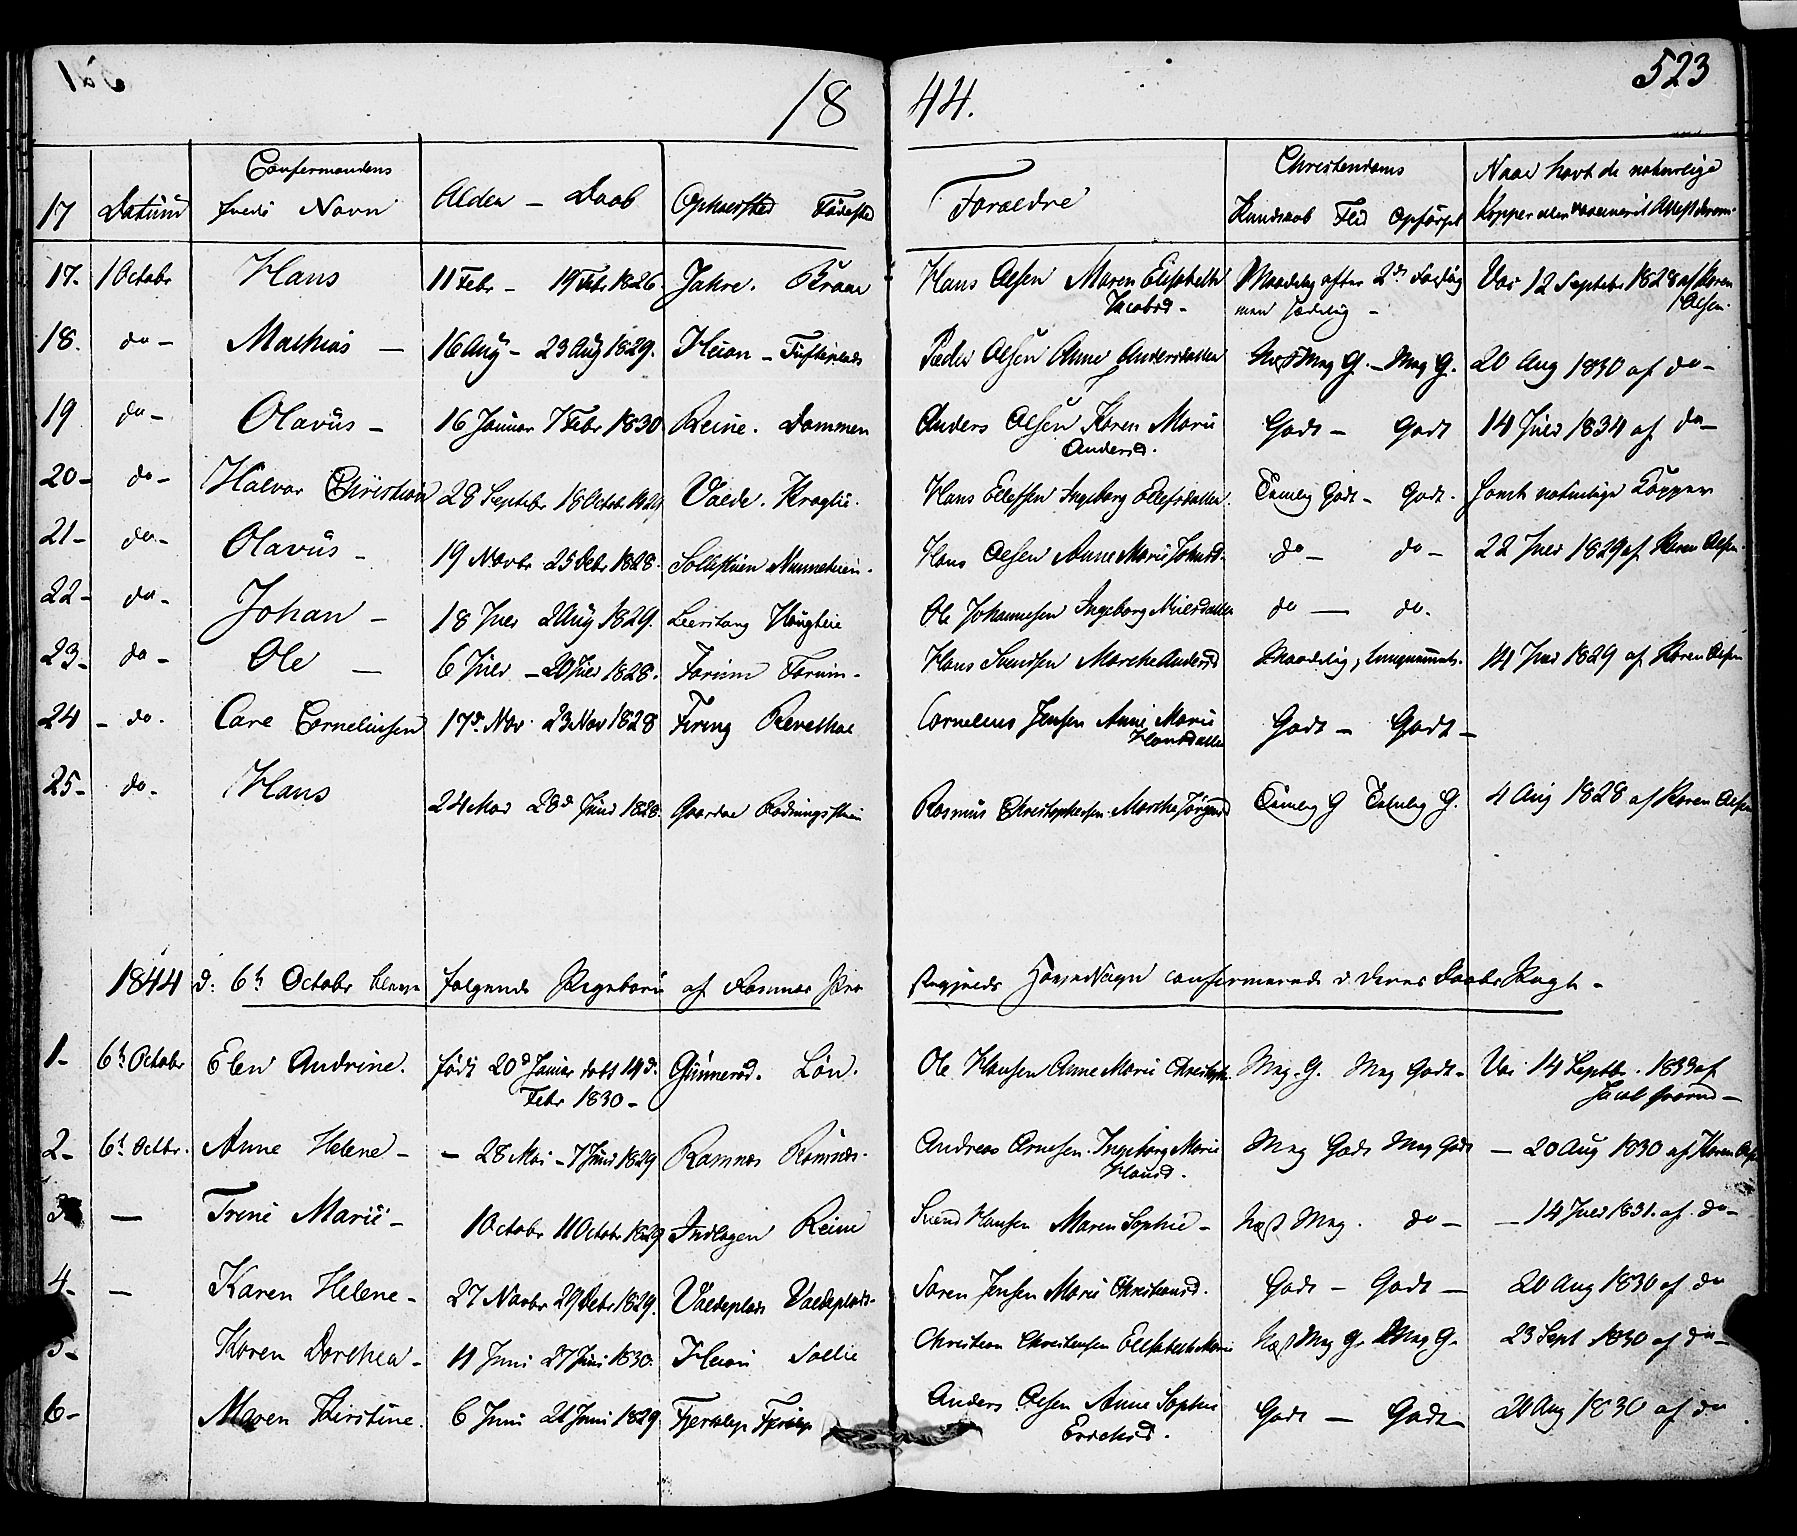 18 44. 523
17 Datum Confermandens fulde Navn Alder — Daab Opholdsted Födested Foraeldre Christendoms Kundskab Flid Opförsel Naar havt de naturlige Kopper eller vaccineret Attest derom
17. 1 Octobr Hans 11 Febr – 19 Febr 1826. Jahre. Hans Olsen Maren Elisabeth Jacobsd – Maadelig efter 2d men sædelig – Vac 12 Septebr 1828 af Soren Olsen
18. do – Mathias — 16 Aug – 23 Aug 1829. Heian – Tufteplads Peder Olsen Anne Andersdatter Næst Meg G. – Meg G. 20 Aug 1830 af do –
19 do – Olavus – 16 Januar 7 Febr 1830 Reine. Dammen Anders Olsen Karen Marie Andersd. Godt – Godt 14 Juli 1834 af do –
20 – do – Halvor Christian 28 Septebr 18 Octobr 1829 Valde. Kroglie. Hans Ellefsen Ingeborg Ellefsdatter Temlig Godt – Godt. havt naturlige Kopper
21 – do – Olavus – 19 Novbr 25 Debr 1828. Hans Olsen Anne Marie do – do – 22 Juli 1829 af Soren Olsen.
22 – do – Johan – 18 Juli 2 Aug 1829. Leerstang Haugleie Ole Johannesen Ingeborg Nilsdatter do — do.
23 – do – Ole — 6 Juli – 20 Juli 1828. Forum Forum – Hans Marthe Andersd Maadelig, 14 Juli 1829 af Soren Olsen
24 – do. Carl Corneliusen 17d. Nov. 23 Nov 1828 Firing Revethal Cornelius Jensen Anne Marie Hansdatter Godt – Godt –
25 – do – Hans 24 Mai 28d Juni 1828. Rasmus Christophersen Marthe Temlig G Temlig G. 4 Aug 1828 af Soren Olsen
1844 d: 6h Octobr bleve folgende Pigebörn af Ramnes Præstegjelds Hovedsogn confirmerede i deres Daabs Pagt –
1 – 6h Octobr Elen Andrine. født 20d Januar döbt 14d. Febr 1830 – Gunnerød. Lön. Ole Hansen Anne Marie Meg. G. Meg Godt – Vac 14 Septbr. 1833 af Jacob
2 – 6h Octbr. Anne Helene – – 28 Mai – 7 Juni 1829 Ramnes Ramnes. Andreas Arnesen. Ingeborg Marie Hansd. Meg Godt Meg Godt – 20 Aug 1830 af Soren Olsen
3 — Trine Marie – 1 Octobr 11 Octobr 1829 Indlagen Reine Svend Hansen Maren Sophie – Næst Meg. do – – 14 Juli 1831. af do –
4 – – Karen Helene – 27 Novbr 29 Debr 1829. Valdeplads Valdeplads – Soren Jensen Marie Christensd. Godt – Godt — 20 Aug 1830 af do
5 – Karen Dorthea – 11 Juni 27 Juni 1830. Heian Sollie Christian Christensen Ellisabeth Marie Næst Meg G. Meg G – 23 Sept 1830 af do –
6 – Maren Kirstine. 6 Juni 21 Juni 1829 Anders Olsen Anne Sophie Godt — Godt 20 Aug 1830 af do